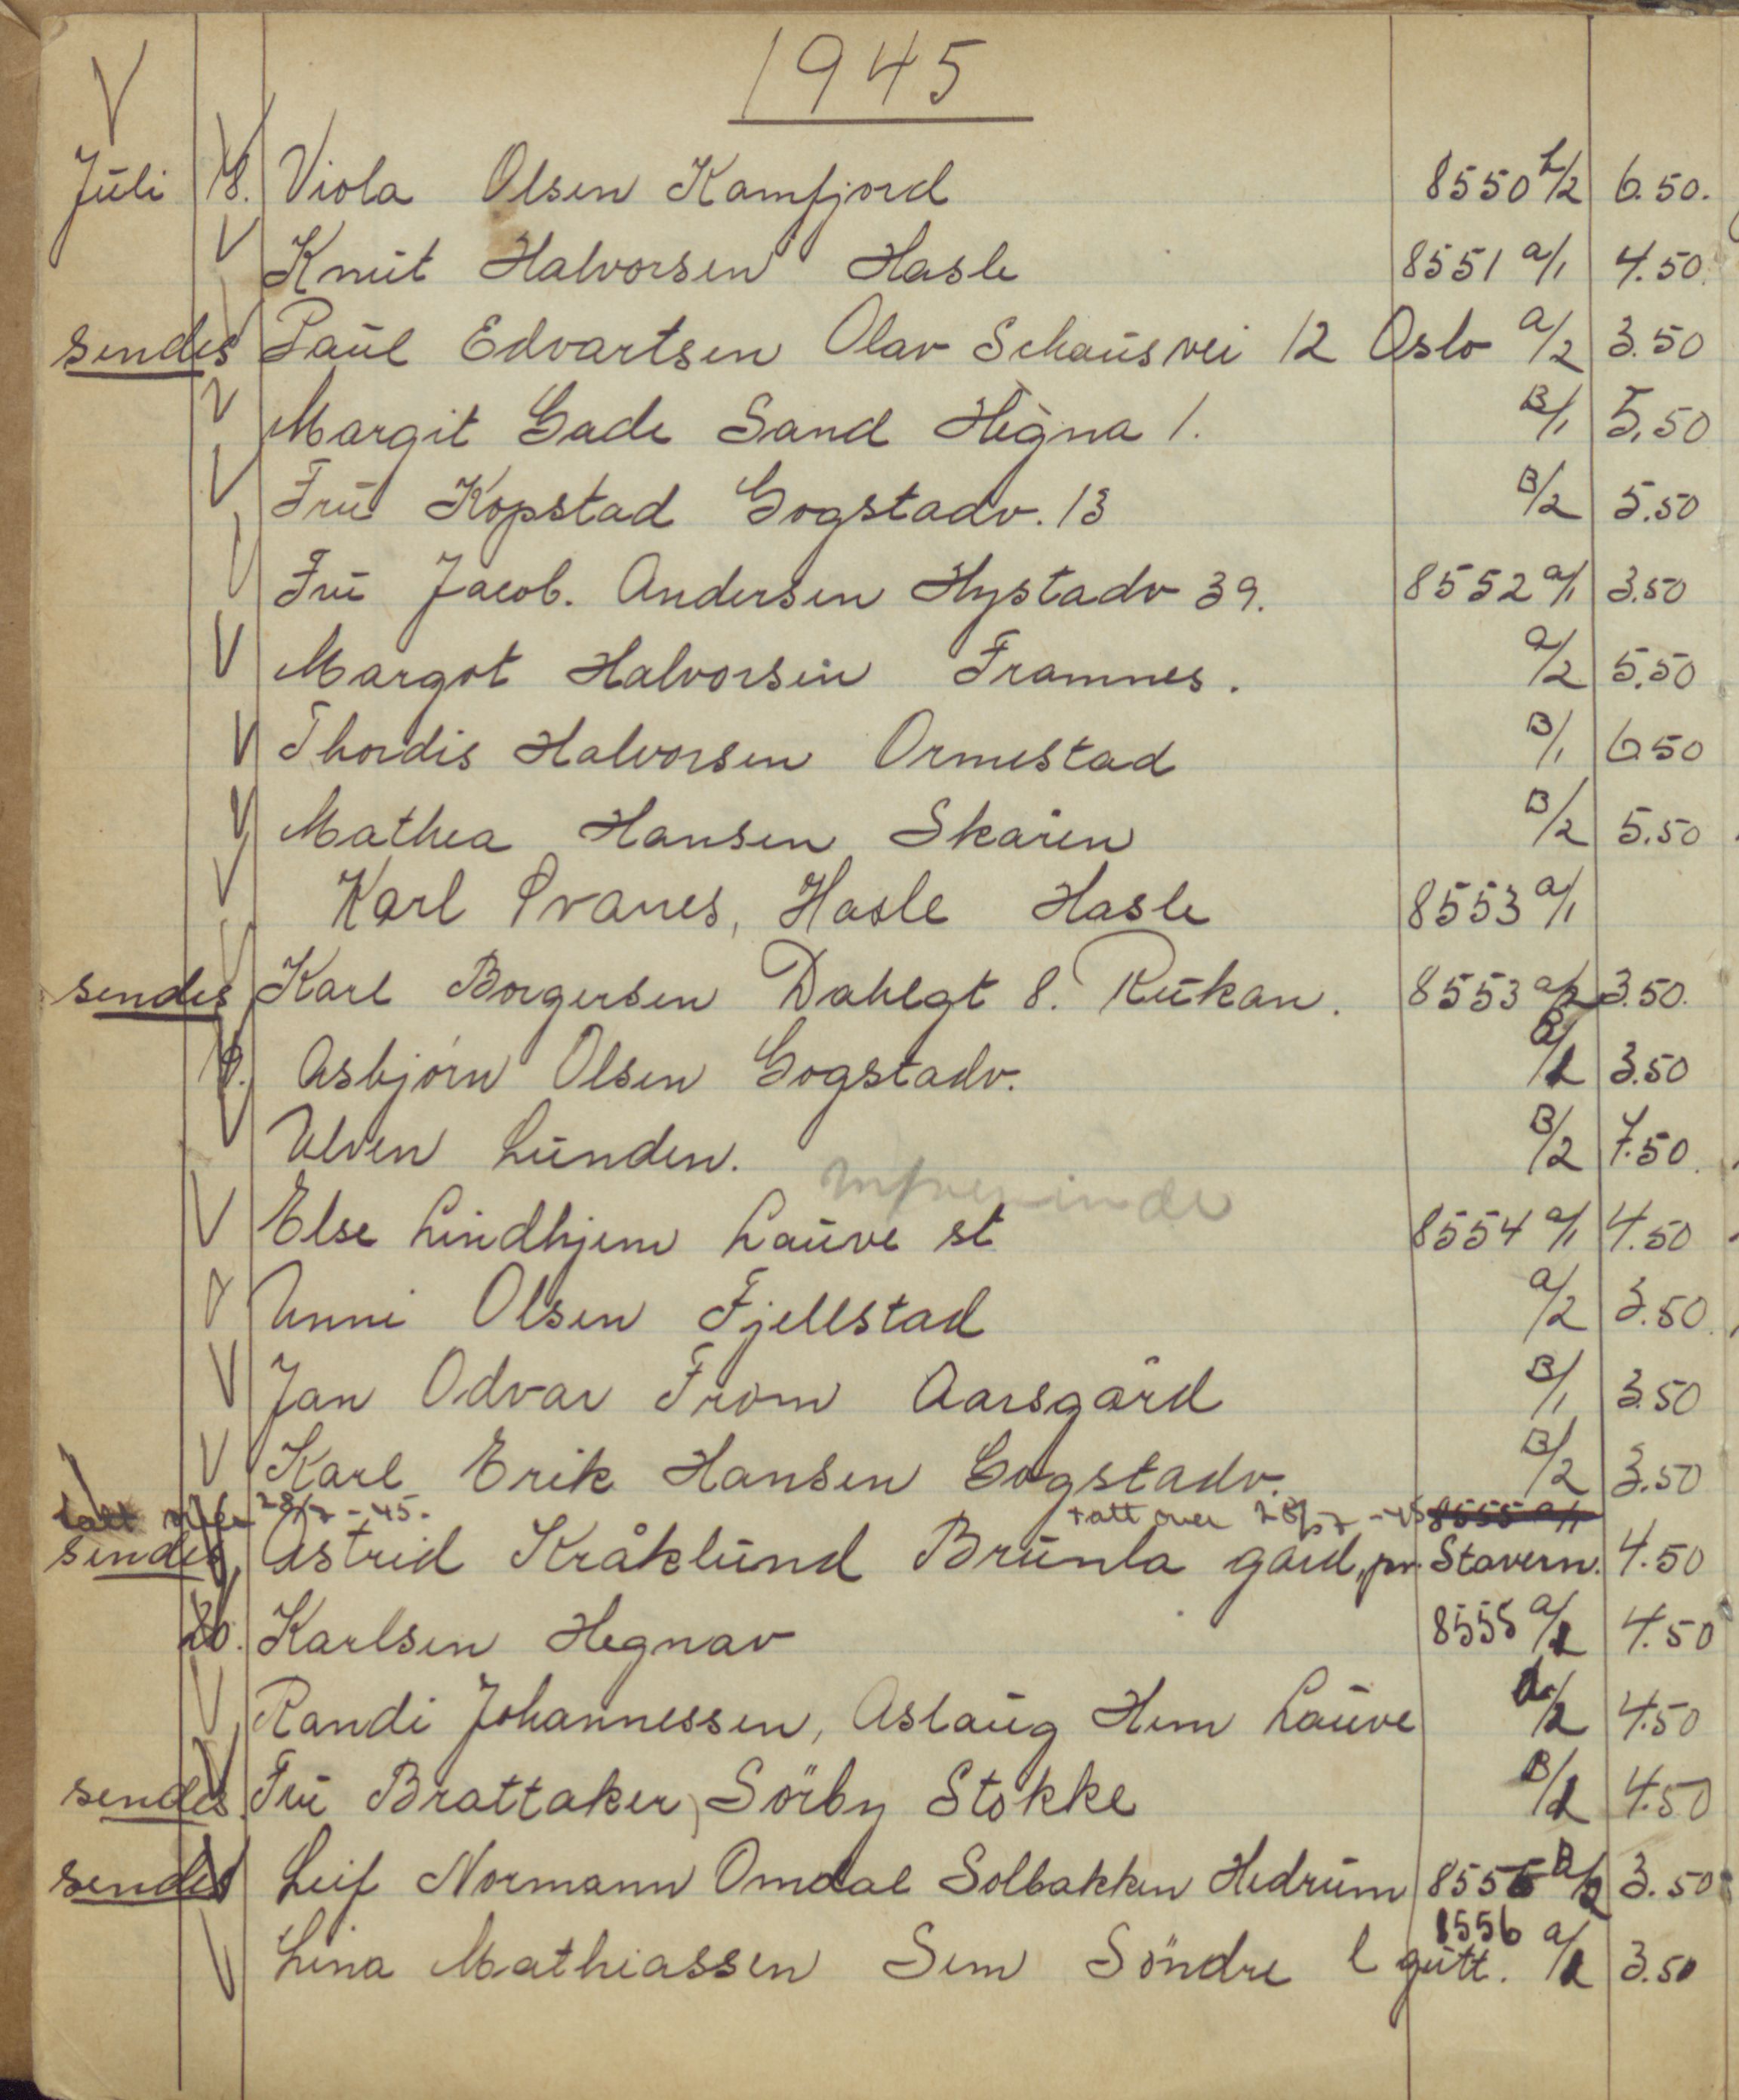 1945
Juli 18. Viola Olsen Kamfjord 8550 b/2 6.50.
Knut Halvorsen Hasle 8551 a/1 4.50.
sendes Paul Edvartsen Olav Schausvei 12 Oslo a/2 3.50
Margit Gade Sand Hegna 1. B/1 5.50
Fru Kopstad Gogstadv. 13 B/2 5.50
Fru Jacob. Andersen Hystadv 39. 8552 a/1 3.50
Margot Halvorsen Framnes. a/2 5.50
Thordis Halvorsen Ormestad B/1 6.50
Mathea Hansen Skaren B/2 5.50
Karl Svanes, Hasle Hasle 8553 a/1
sendes Karl Borgersen Dahlgt 8. Rukan. 8553 a/2 3.50.
Asbjörn Olsen Gogstadv. B/1 3.50
Ulven Lunden. B/2 7.50.
Else Lindhjem Lauve st 8554 a/1 4.50
Unni Olsen Fjellstad a/2 3.50.
Jan Odvar From Aarsgård B/1 3.50
Karl Erik Hansen Gogstadv. B/2 3.50
tatt over 28/7-45. tatt over 28/7-45 8555 a/1
sendes Astrid Kråklund Brunla gård, pr. Stavern. 4.50
20. Karlsen Hegnav 8555 a/1 4.50
Randi Johannessen, Aslaug Hem Lauve a/2 4.50
sendes. Fru Brattaker, Sörby Stokke B/1 4.50
sendes Leif Normann Omdal Solbakken Hedrum 8555 B/2 3.50
Lina Mathiassen Sem Söndre l gutt. 8556 a/1 3.50